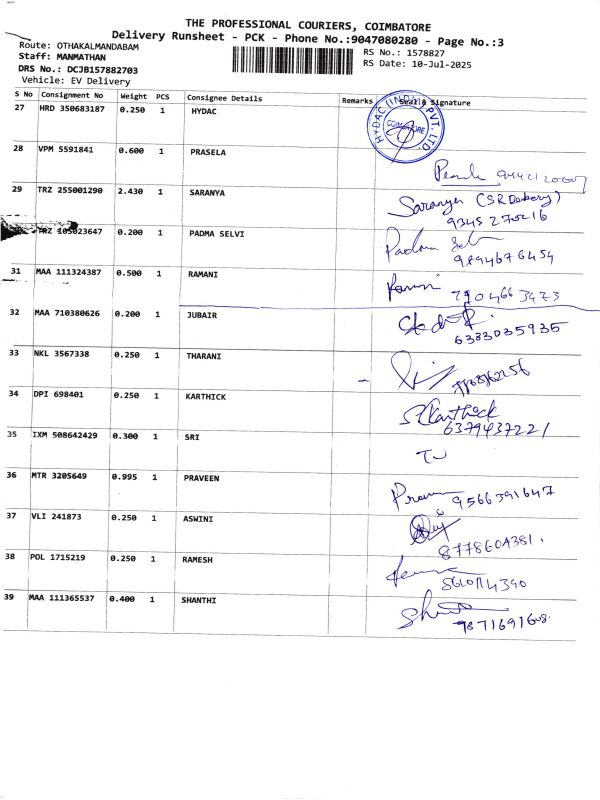 THE PROFESSIONAL COURIERS, COIMBATORE
Delivery Runsheet - PCK - Phone No.:9047080280 - Page No.:3
Route: OTHAKALMANDABAM
Staff: MANMATHAN
DRS No.: DCJB157882703
Vehicle: EV Delivery
RS No.: 1578827
RS Date: 10-Jul-2025
S No Consignment No Weight PCS Consignee Details Remarks Seal & Signature
27 HRD 350683187 0.250 1 HYDAC
HYDAC (INDIA) PVT. LTD. COIMBATORE
28 VPM 5591841 0.600 1 PRASELA
29 TRZ 255001290 2.430 1 SARANYA Saranya (SR Bakery)
9345270216
TRZ 105023647 0.200 1 PADMA SELVI Padma Sel
9894676454
31 MAA 111324387 0.500 1 RAMANI
7904663473
32 MAA 710380626 0.200 1 JUBAIR
6383035935
33 NKL 3567338 0.250 1 THARANI
34 DPI 698401 0.250 1 KARTHICK S. Karthick
6379437221
35 IXM 508642429 0.300 1 SRI
36 MTR 3205649 0.995 1 PRAVEEN 9566391647
37 VLI 241873 0.250 1 ASWINI
8778604381.
38 POL 1715219 0.250 1 RAMESH
39 MAA 111365537 0.400 1 SHANTHI